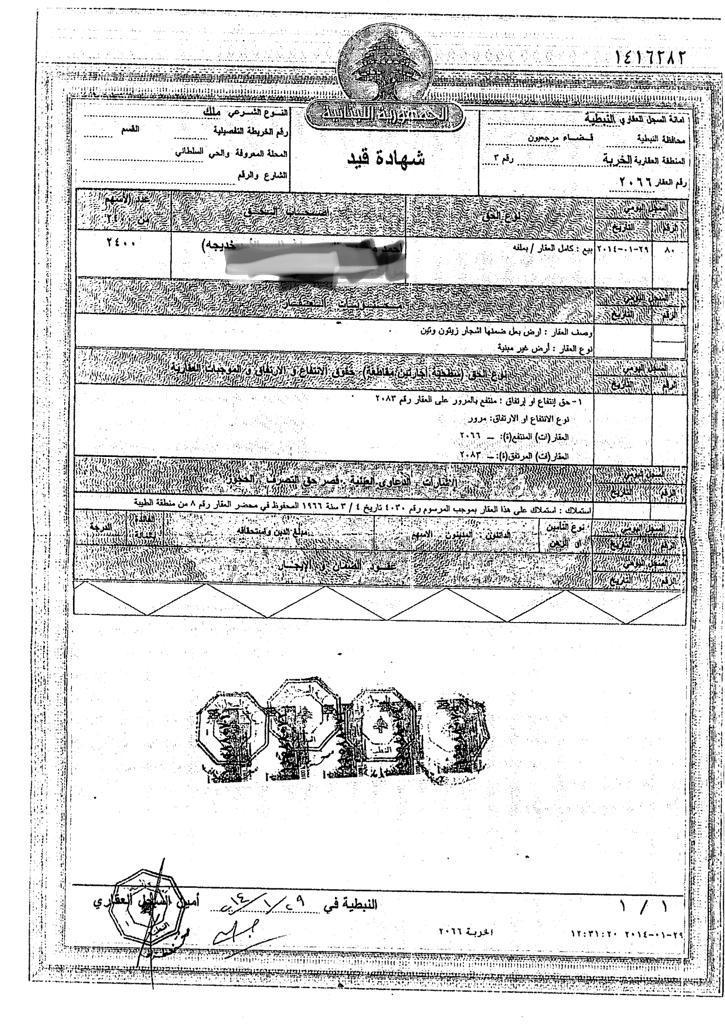 ١٤١٦٢٨٢
الجمهورية اللبنانية
شهادة قيد
امانة السجل العقاري النبطية
محافظة النبطية قضاء مرجعيون
المنطقة العقارية الخربة رقم ٣
رقم العقار ٢٠٦٦
النوع الشرعي ملك
رقم الخريطة التفصيلية القسم
المحلة المعروفة والحي السلطاني
الشارع والرقم
السجل اليومي نوع الحق اصحاب الحق عدد الأسهم
الرقم التاريخ من ٢٤٠٠
٨٠ ٢٠١٤-٠١-٢٩ بيع : كامل العقار / بملفه خديجه) ٢٤٠٠
السجل اليومي
الرقم التاريخ
وصف العقار : ارض بعل ضمنها اشجار زيتون وتين
نوع العقار : أرض غير مبنية
السجل اليومي نوع الحق (سطحية إجارتين مقاطعة) حقوق الانتفاع و الارتفاق و الموجبات العقارية
الرقم التاريخ
١- حق إنتفاع او إرتفاق : منتفع بالمرور على العقار رقم ٢٠٨٣
نوع الانتفاع او الارتفاق: مرور
العقار(ات) المنتفع(ة): - ٢٠٦٦
العقار(ات) المرتفق(ة): - ٢٠٨٣
السجل اليومي الاشارات الدعاوى العينية قصر حق التصرف الحجوز
الرقم التاريخ
استملاك : استملاك على هذا العقار بموجب المرسوم رقم ٤٠٣٠ تاريخ ٤ / ٣ سنة ١٩٦٦ المحفوظ في محضر العقار رقم ٨ من منطقة الطيبة
السجل اليومي نوع التأمين الدائنون المدينون الاسهم مبلغ الدين واستحقاقه الفائدة الدرجة
الرقم التاريخ او الرهن
السجل اليومي عقود الضمان والإيجار
الرقم التاريخ
١ / ١
النبطية في ٢٩/١/٢٠١٤ أمين السجل العقاري
٢٠١٤-٠١-٢٩ ١٢:٣١:٢٠ الخربة ٢٠٦٦